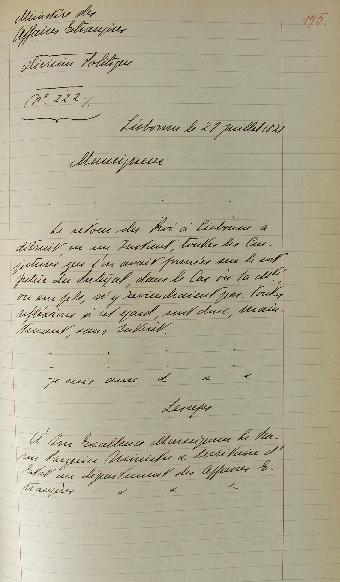 195.
Ministère des
Affaires Etrangères
Division Politique
(Nº 222)
Lisbonne le 27 juillet 1821
Monseigneur
Le retour du Roi à Lisbonne a
détruit en un instant, toutes les Con-
jectures que l'on avait formées sur le sort
futur du Portugal, dans le Cas où Sa Mté,
ou son fils, n'y reviendraient pas. Toutes
réflexions à cet égard, sont donc, main-
tenant, sans intérêt.
je suis avec &
Lesseps
A Son Excellence Monseigneur le Ba-
ron Pasquier Ministre & Secrétaire d'
Etat au département des Affaires E-
trangères & &